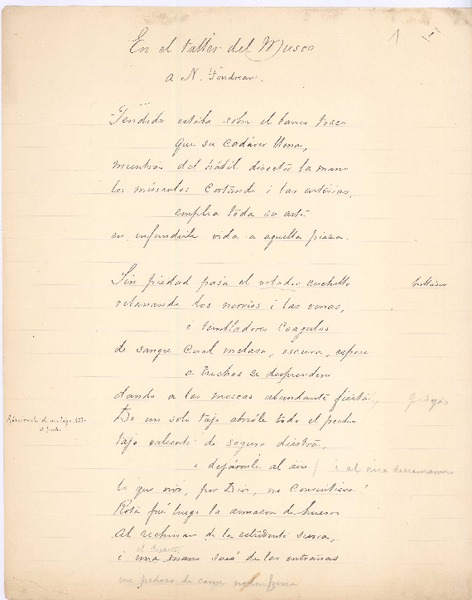 En el taller del Museo
a N. Fondrean.
1
Tendida estaba sobre el banco tosco
que su cadáver llena,
mientras del hábil director la mano
los músculos cortando i las arterias,
emplea toda su arte
en infundirle vida a aquella pieza.
Sin piedad pasa el cuchillo
rebanando los nervios i las venas,
i tembladores coágulos
de sangre cual melaza, oscura, espesa
a trechos se desprenden
dando a las moscas abundante fiesta,
De un solo tajo abrióle todo el pecho
tajo valiente de segura diestra,
i dejáronle al aire / i al aire derramaron
lo que vivo, por Dios, no consintiera!
Rota fué luego la armazon de huesos
al rechinar de la estridente sierra,
i una mano sacó de las entrañas
un pedazo de carne